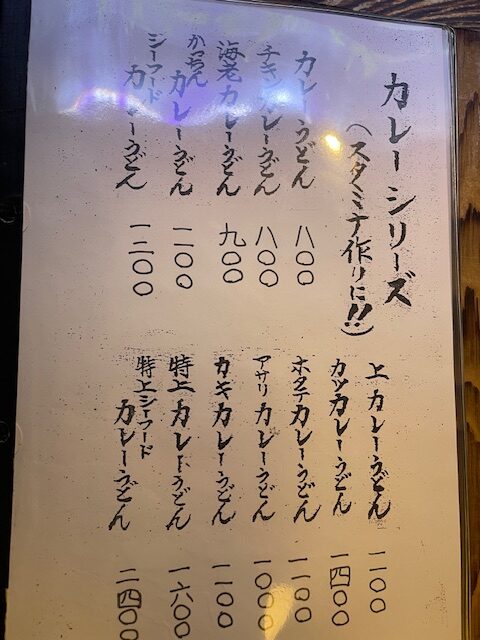 カレーシリーズ
(スタミナ作りに!!)
カレーうどん 八〇〇
チキンカレーうどん 八〇〇
海老カレーうどん 九〇〇
かっちんカレーうどん 一一〇〇
シーフードカレーうどん 一二〇〇
上カレーうどん 一一〇〇
カツカレーうどん 一四〇〇
ホタテカレーうどん 一一〇〇
アサリカレーうどん 一〇〇〇
カキカレーうどん 一一〇〇
特上カレーうどん 一六〇〇
特上シーフードカレーうどん 二四〇〇